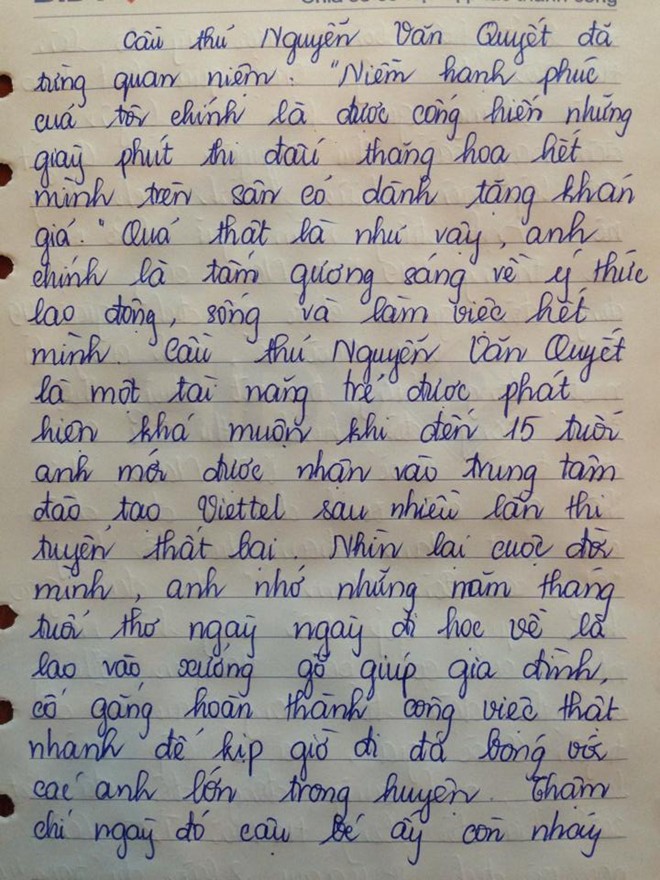 Cầu thủ Nguyễn Văn Quyết đã
từng quan niệm: "Niềm hạnh phúc
của tôi chính là được cống hiến những
giây phút thi đấu thăng hoa hết
mình trên sân cỏ dành tặng khán
giả." Quả thật là như vậy, anh
chính là tấm gương sáng về ý thức
lao động, sống và làm việc hết
mình. Cầu thủ Nguyễn Văn Quyết
là một tài năng trẻ được phát
hiện khá muộn khi đến 15 tuổi
anh mới được nhận vào trung tâm
đào tạo Viettel sau nhiều lần thi
tuyển thất bại. Nhìn lại cuộc đời
mình, anh nhớ những năm tháng
tuổi thơ ngày ngày đi học về là
lao vào xưởng gỗ giúp gia đình,
cố gắng hoàn thành công việc thật
nhanh để kịp giờ đi đá bóng với
các anh lớn trong huyện. Thậm
chí ngày đó cậu bé ấy còn nhảy